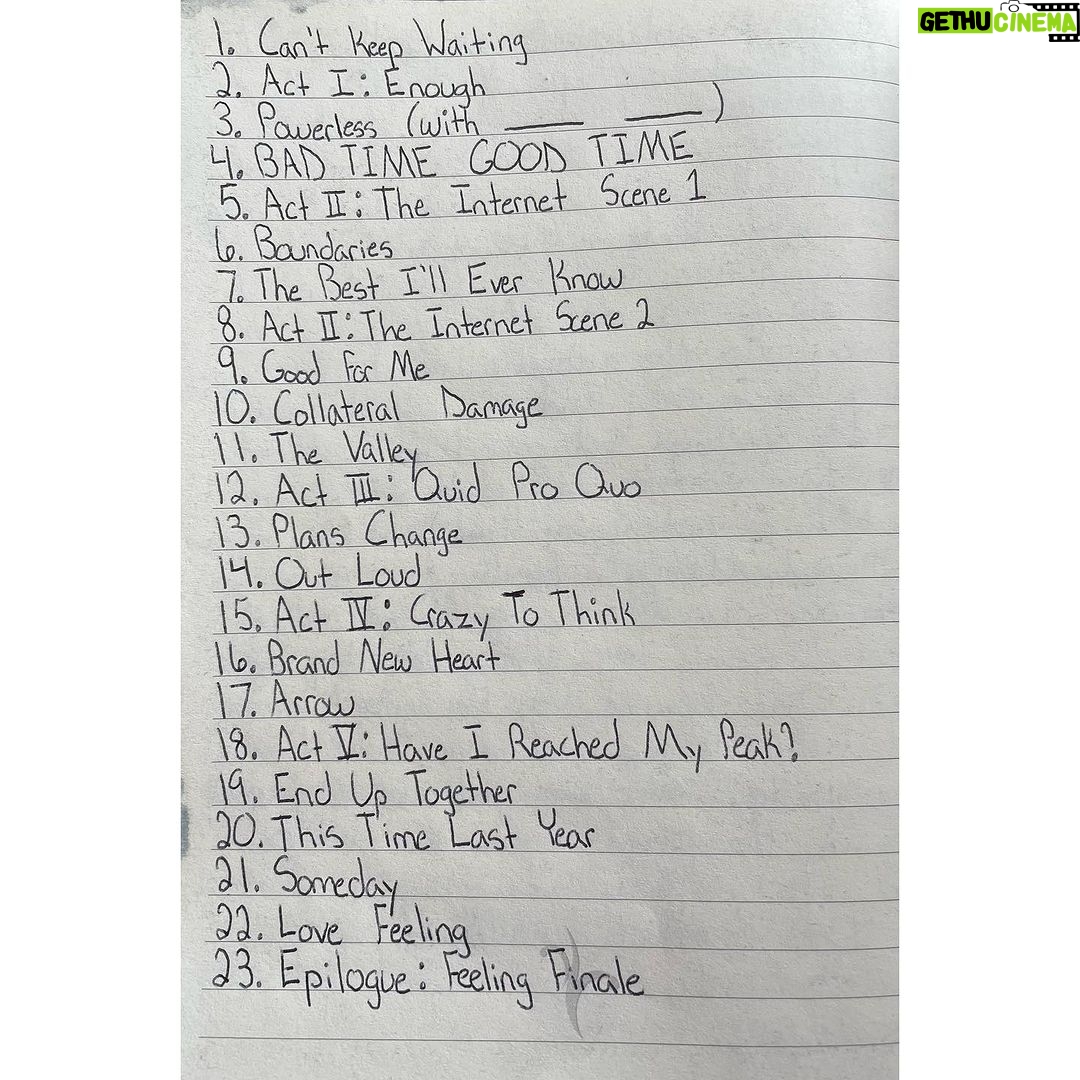 GETHUCINEMA
1. Can't Keep Waiting
2. Act I: Enough
3. Powerless (with ____ ____)
4. BAD TIME GOOD TIME
5. Act II: The Internet Scene 1
6. Boundaries
7. The Best I'll Ever Know
8. Act II: The Internet Scene 2
9. Good For Me
10. Collateral Damage
11. The Valley
12. Act III: Quid Pro Quo
13. Plans Change
14. Out Loud
15. Act IV: Crazy To Think
16. Brand New Heart
17. Arrow
18. Act V: Have I Reached My Peak?
19. End Up Together
20. This Time Last Year
21. Someday
22. Love Feeling
23. Epilogue: Feeling Finale